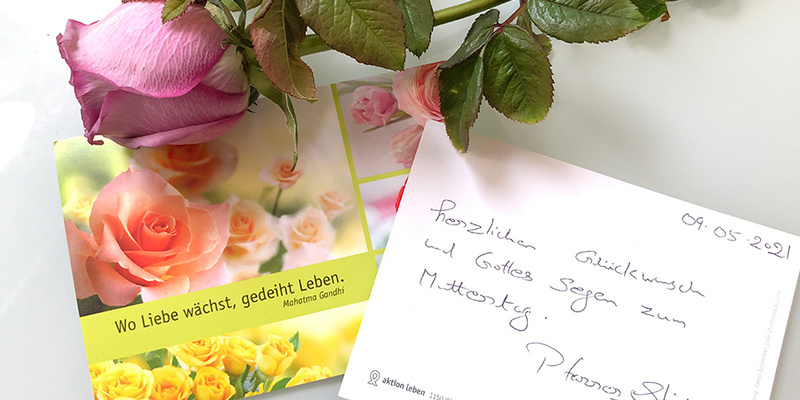 Wo Liebe wächst, gedeiht Leben.
Mahatma Gandhi
09.05.2021
Herzlichen Glückwunsch
und Gottes Segen zum
Muttertag.
Pfarrer
aktion leben